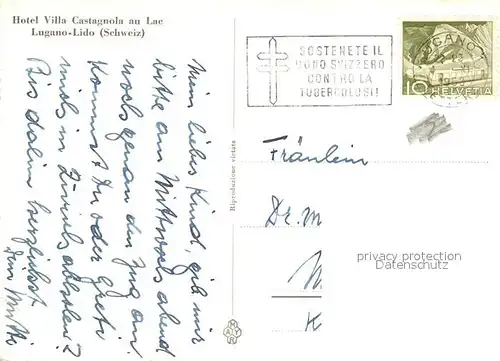 Hotel Villa Castagnola au Lac
Lugano-Lido (Schweiz)
SOSTENETE IL
DONO SVIZZERO
CONTRO LA
TUBERCOLOSI!
LUGANO
10 HELVETIA
Mein liebes Kind, gib mir
bitte am Mittwoch abend
noch genau den Zug an.
Kommst Du oder Greti
mich in Zürich abholen?
Bis dahin herzlichst
Dein Mutti
Riproduzione vietata
Fräulein
Dr. M
privacy protection
Datenschutz
K